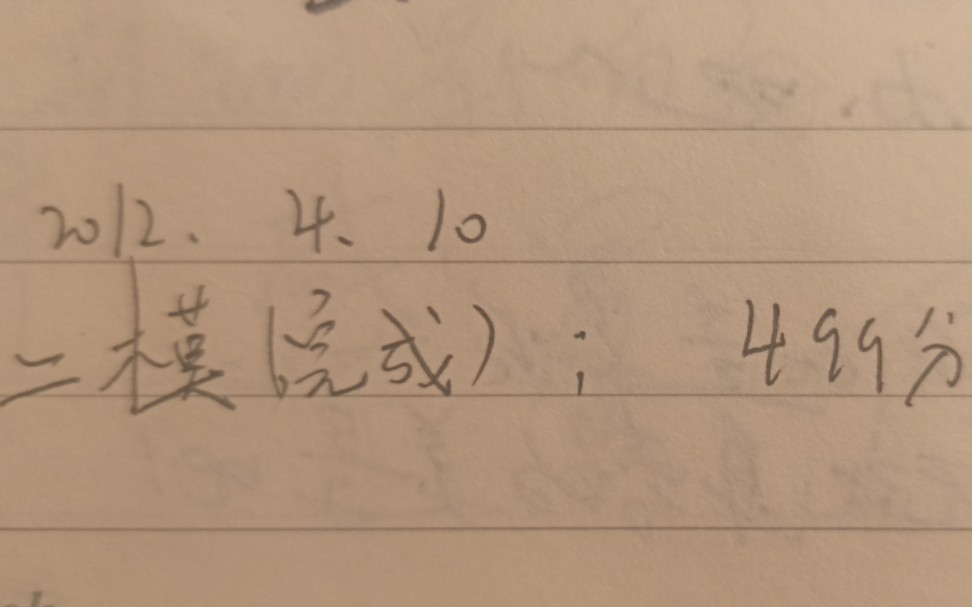 2012. 4. 10
二模(完成): 499分